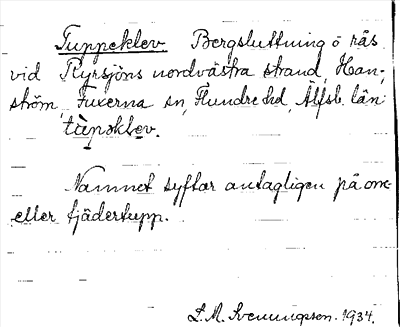 Tuppeklev. Bergsluttning o rås
vid Kyrsjöns nordvästra strand, Han-
ström, Fuxerna sn, Flundre hd, Älfsb. län
tùpəklev.
Namnet syftar antagligen på
eller fjädertupp.
L.M. Svenungsson. 1934.